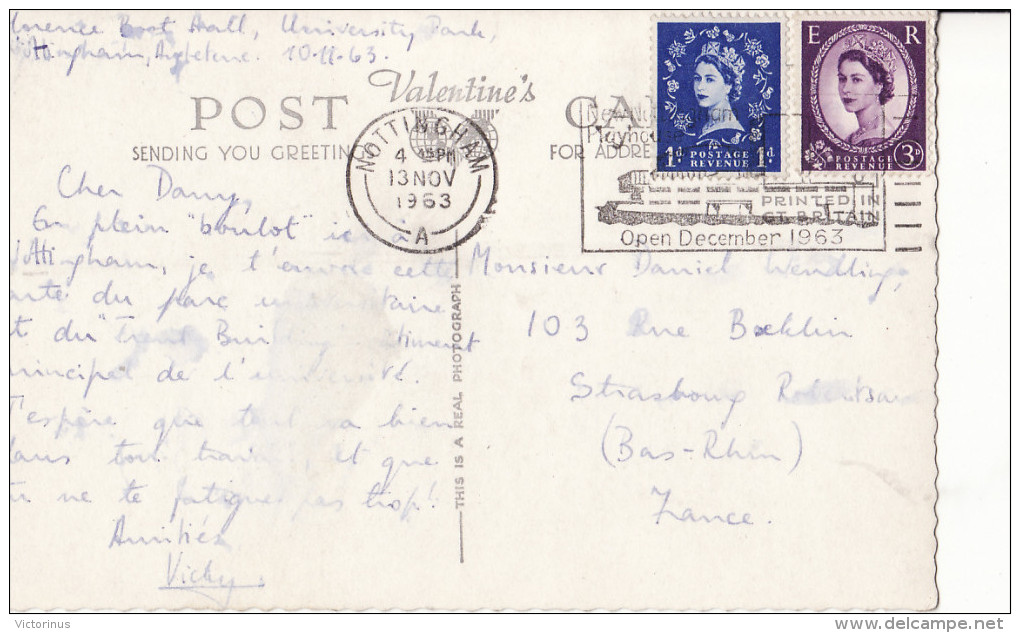 lorence Boot Hall, University Park,
ottingham, Angleterre. 10-11-63.
POST CA
Valentine's
SENDING YOU GREETIN
FOR ADDRE
NOTTINGHAM
4 45PM
13 NOV
1963
A
New Nottingham
Playhouse
Open December 1963
PRINTED IN
GT BRITAIN
1d POSTAGE 1d
REVENUE
E R
POSTAGE 3d
REVENUE
Cher Dany,
En plein "boulot" ici à
ottingham, je t'envoie cette
arte du parc universitaire
t du "Trent Building" bâtiment
rincipal de l'université.
J'espère que tout va bien
dans ton travail, et que
tu ne te fatigues pas trop!
Amitiés
Vicky.
THIS IS A REAL PHOTOGRAPH
Monsieur Daniel Wendling,
103 Rue Bœcklin
Strasbourg Robertsau
(Bas-Rhin)
France.
© Victorinus
www.delcampe.net